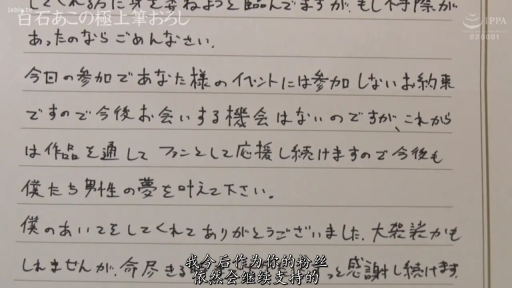 白石あこの極上筆おろし
TIPPA
020001
してくれる方に身を委ねようと臨んでますが、もし不際が
あったのならごめんなさい。
今日の参加であなた様のイベントには参加しないお約束
ですので今後お会いする機会はないのですが、これから
は作品を通してファンとして応援し続けますので今後も
僕たち男性の夢を叶えて下さい。
僕のあいてをしてくれてありがとうございました。大袈裟かも
しれませんが、命尽きる っと感謝し続けます
我今后作为你的粉丝
依然会继续支持的